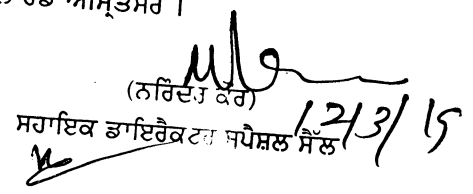 ਰੋਡ ਅੰਮ੍ਰਿਤਸਰ ।
(ਨਰਿੰਦਰ ਕੌਰ)
ਸਹਾਇਕ ਡਾਇਰੈਕਟਰ ਸਪੈਸ਼ਲ ਸੈੱਲ 12/3/15